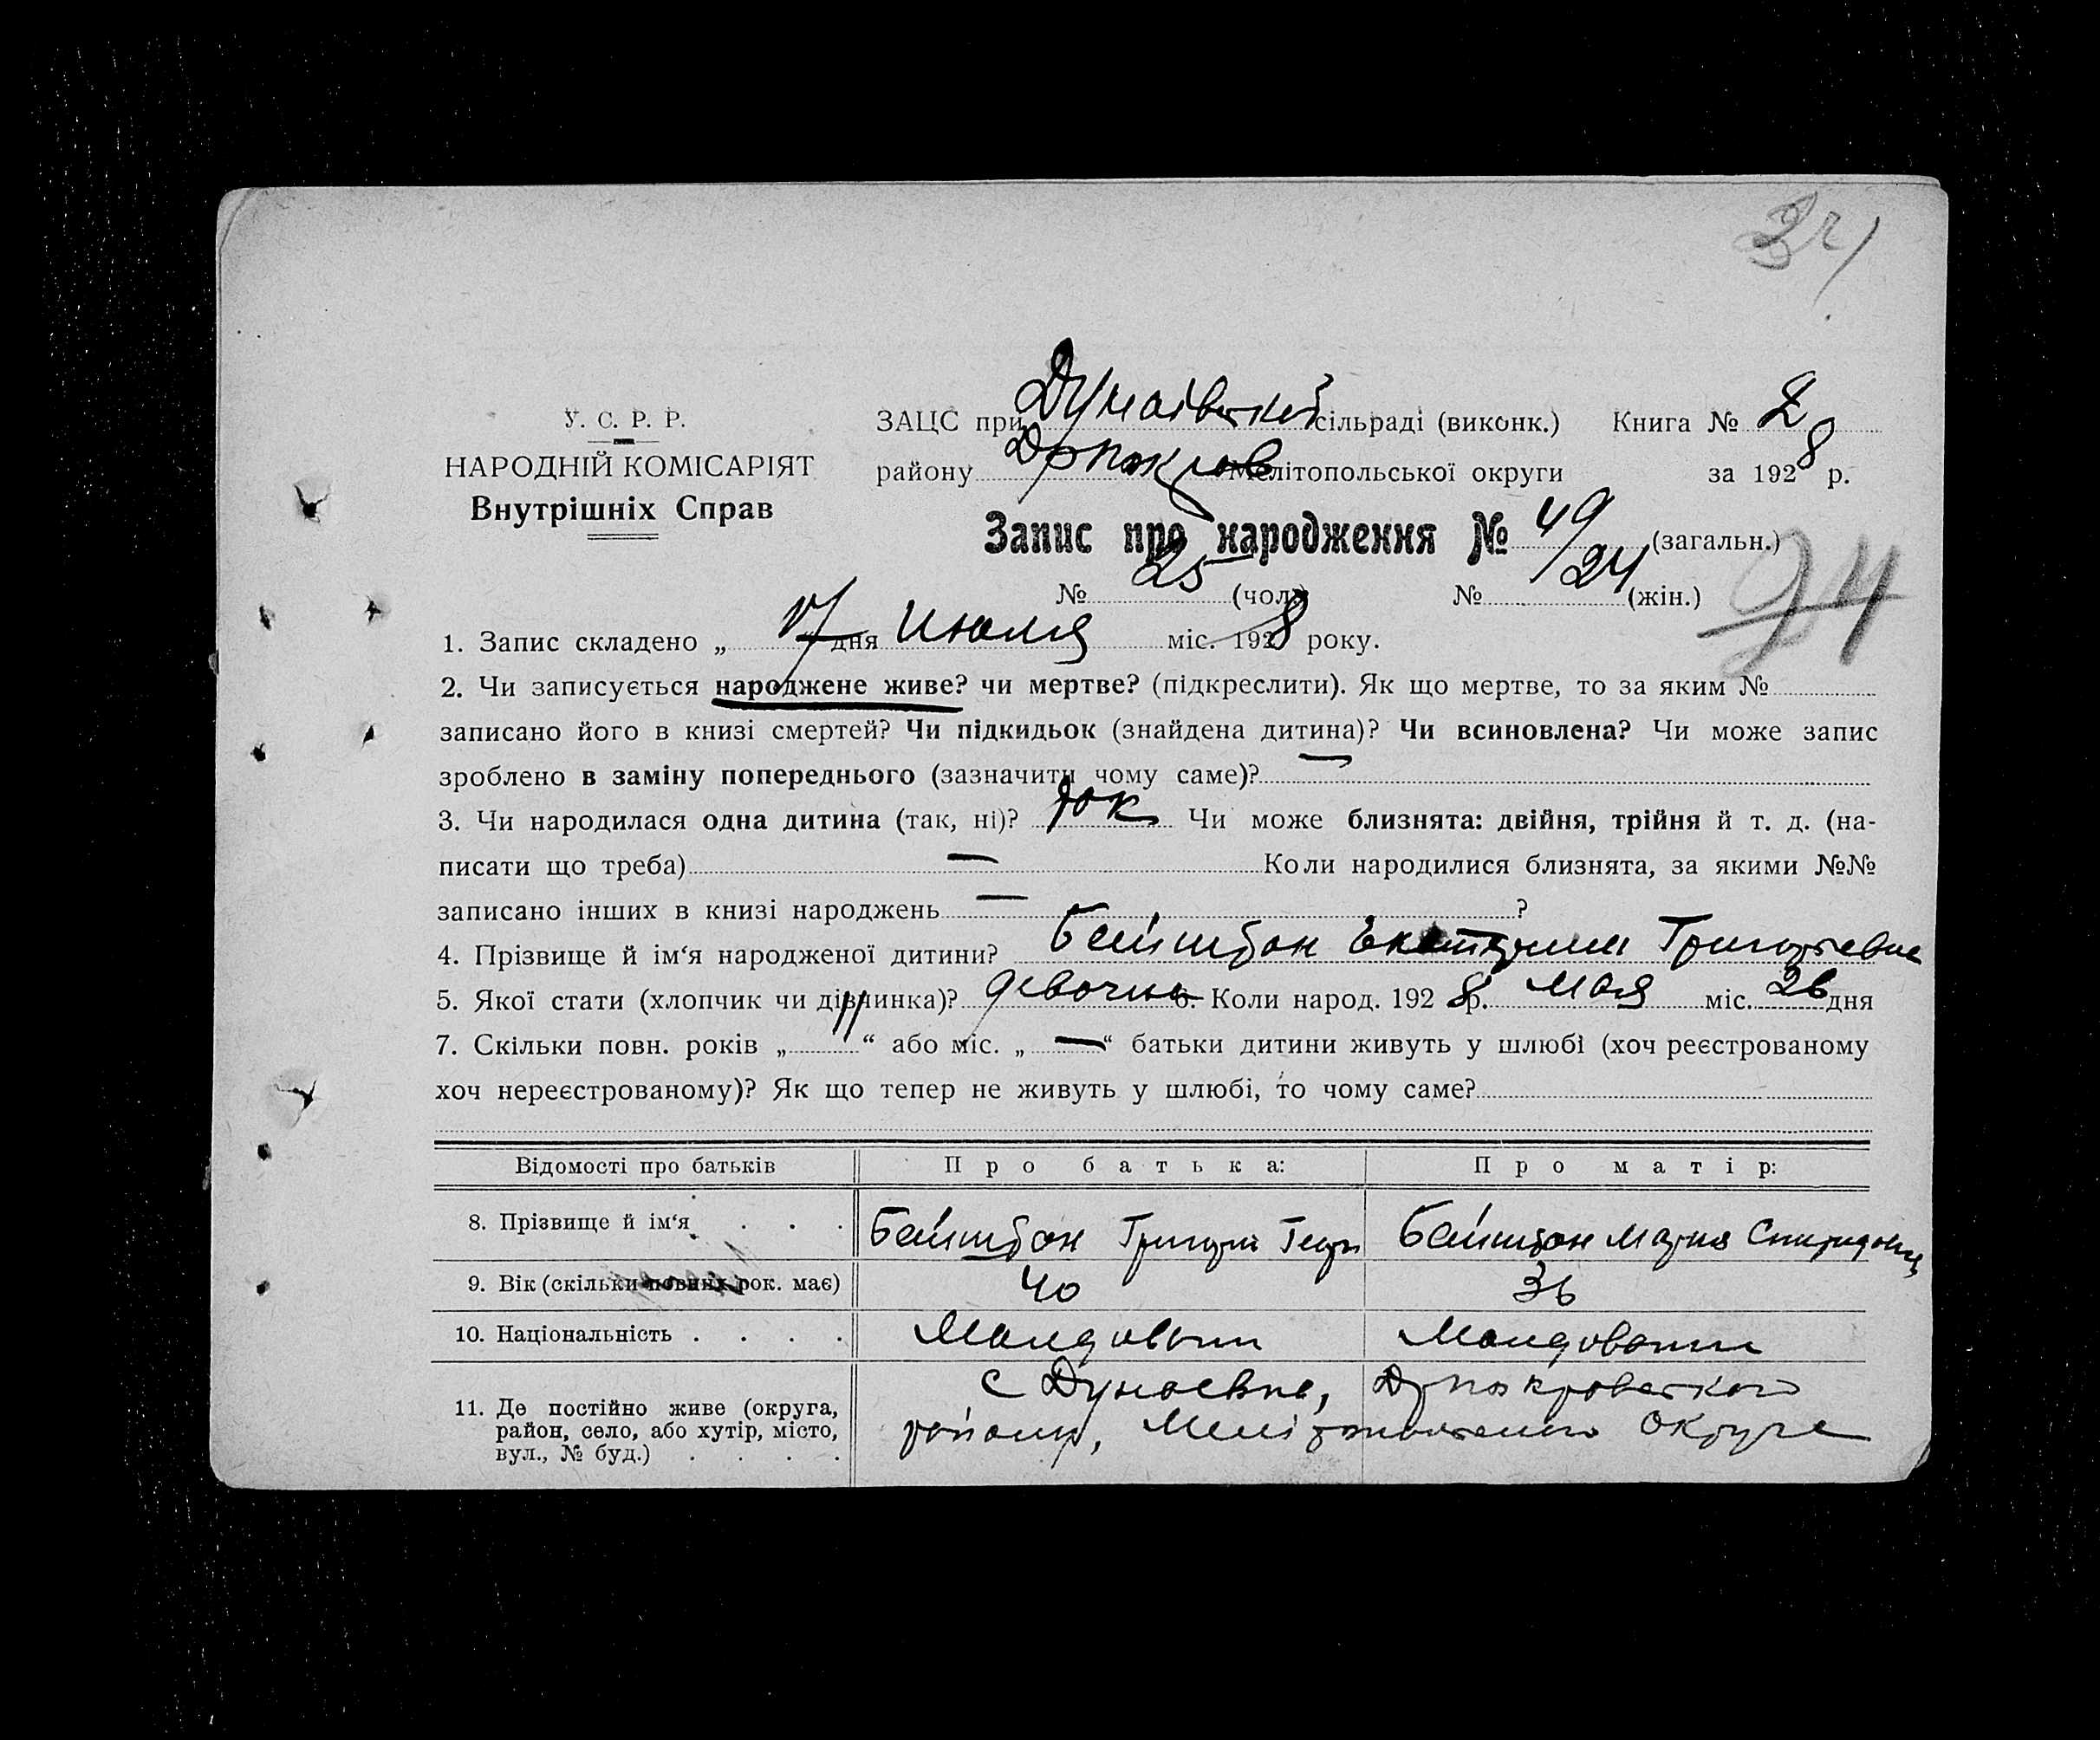 34
У. С. Р. Р.
НАРОДНІЙ КОМІСАРІЯТ
Внутрішніх Справ
ЗАЦС при Дунаівській сільраді (виконк.) Книга № 2
району Дрпокров Мелітопольської округи за 1928 р.
Запис про народження № 49/24 (загальн.)
№ 25 (чол.) № (жін.)
24
1. Запис складено „ 17 дня Июля міс. 1928 року.
2. Чи записується народжене живе? чи мертве? (підкреслити). Як що мертве, то за яким №
записано його в книзі смертей? Чи підкидьок (знайдена дитина)? Чи всиновлена? Чи може запис
зроблено в заміну попереднього (зазначити чому саме)? —
3. Чи народилася одна дитина (так, ні)? так Чи може близнята: двійня, трійня й т. д. (на-
писати що треба) — Коли народилися близнята, за якими №№
записано інших в книзі народжень — ?
4. Прізвище й ім‘я народженої дитини? Екатерина Григорьевна
5. Якої стати (хлопчик чи дівчинка)? девочка 6. Коли народ. 1928 р. Мая міс. 26 дня
7. Скільки повн. років „ 11 “ або міс. „ — “ батьки дитини живуть у шлюбі (хоч реєстрованому
хоч нереєстрованому)? Як що тепер не живуть у шлюбі, то чому саме?
Відомості про батьків Про батька: Про матір:
8. Прізвище й ім‘я Григорий Геор Мария Спиридовна
9. Вік (скільки повних рок. має) 40 36
10. Національність Молдован Молдован
11. Де постійно живе (округа,
район, село, або хутір, місто,
вул., № буд.)
с Дунаевка, Дрпокровского
району, Мелітопольского Округа